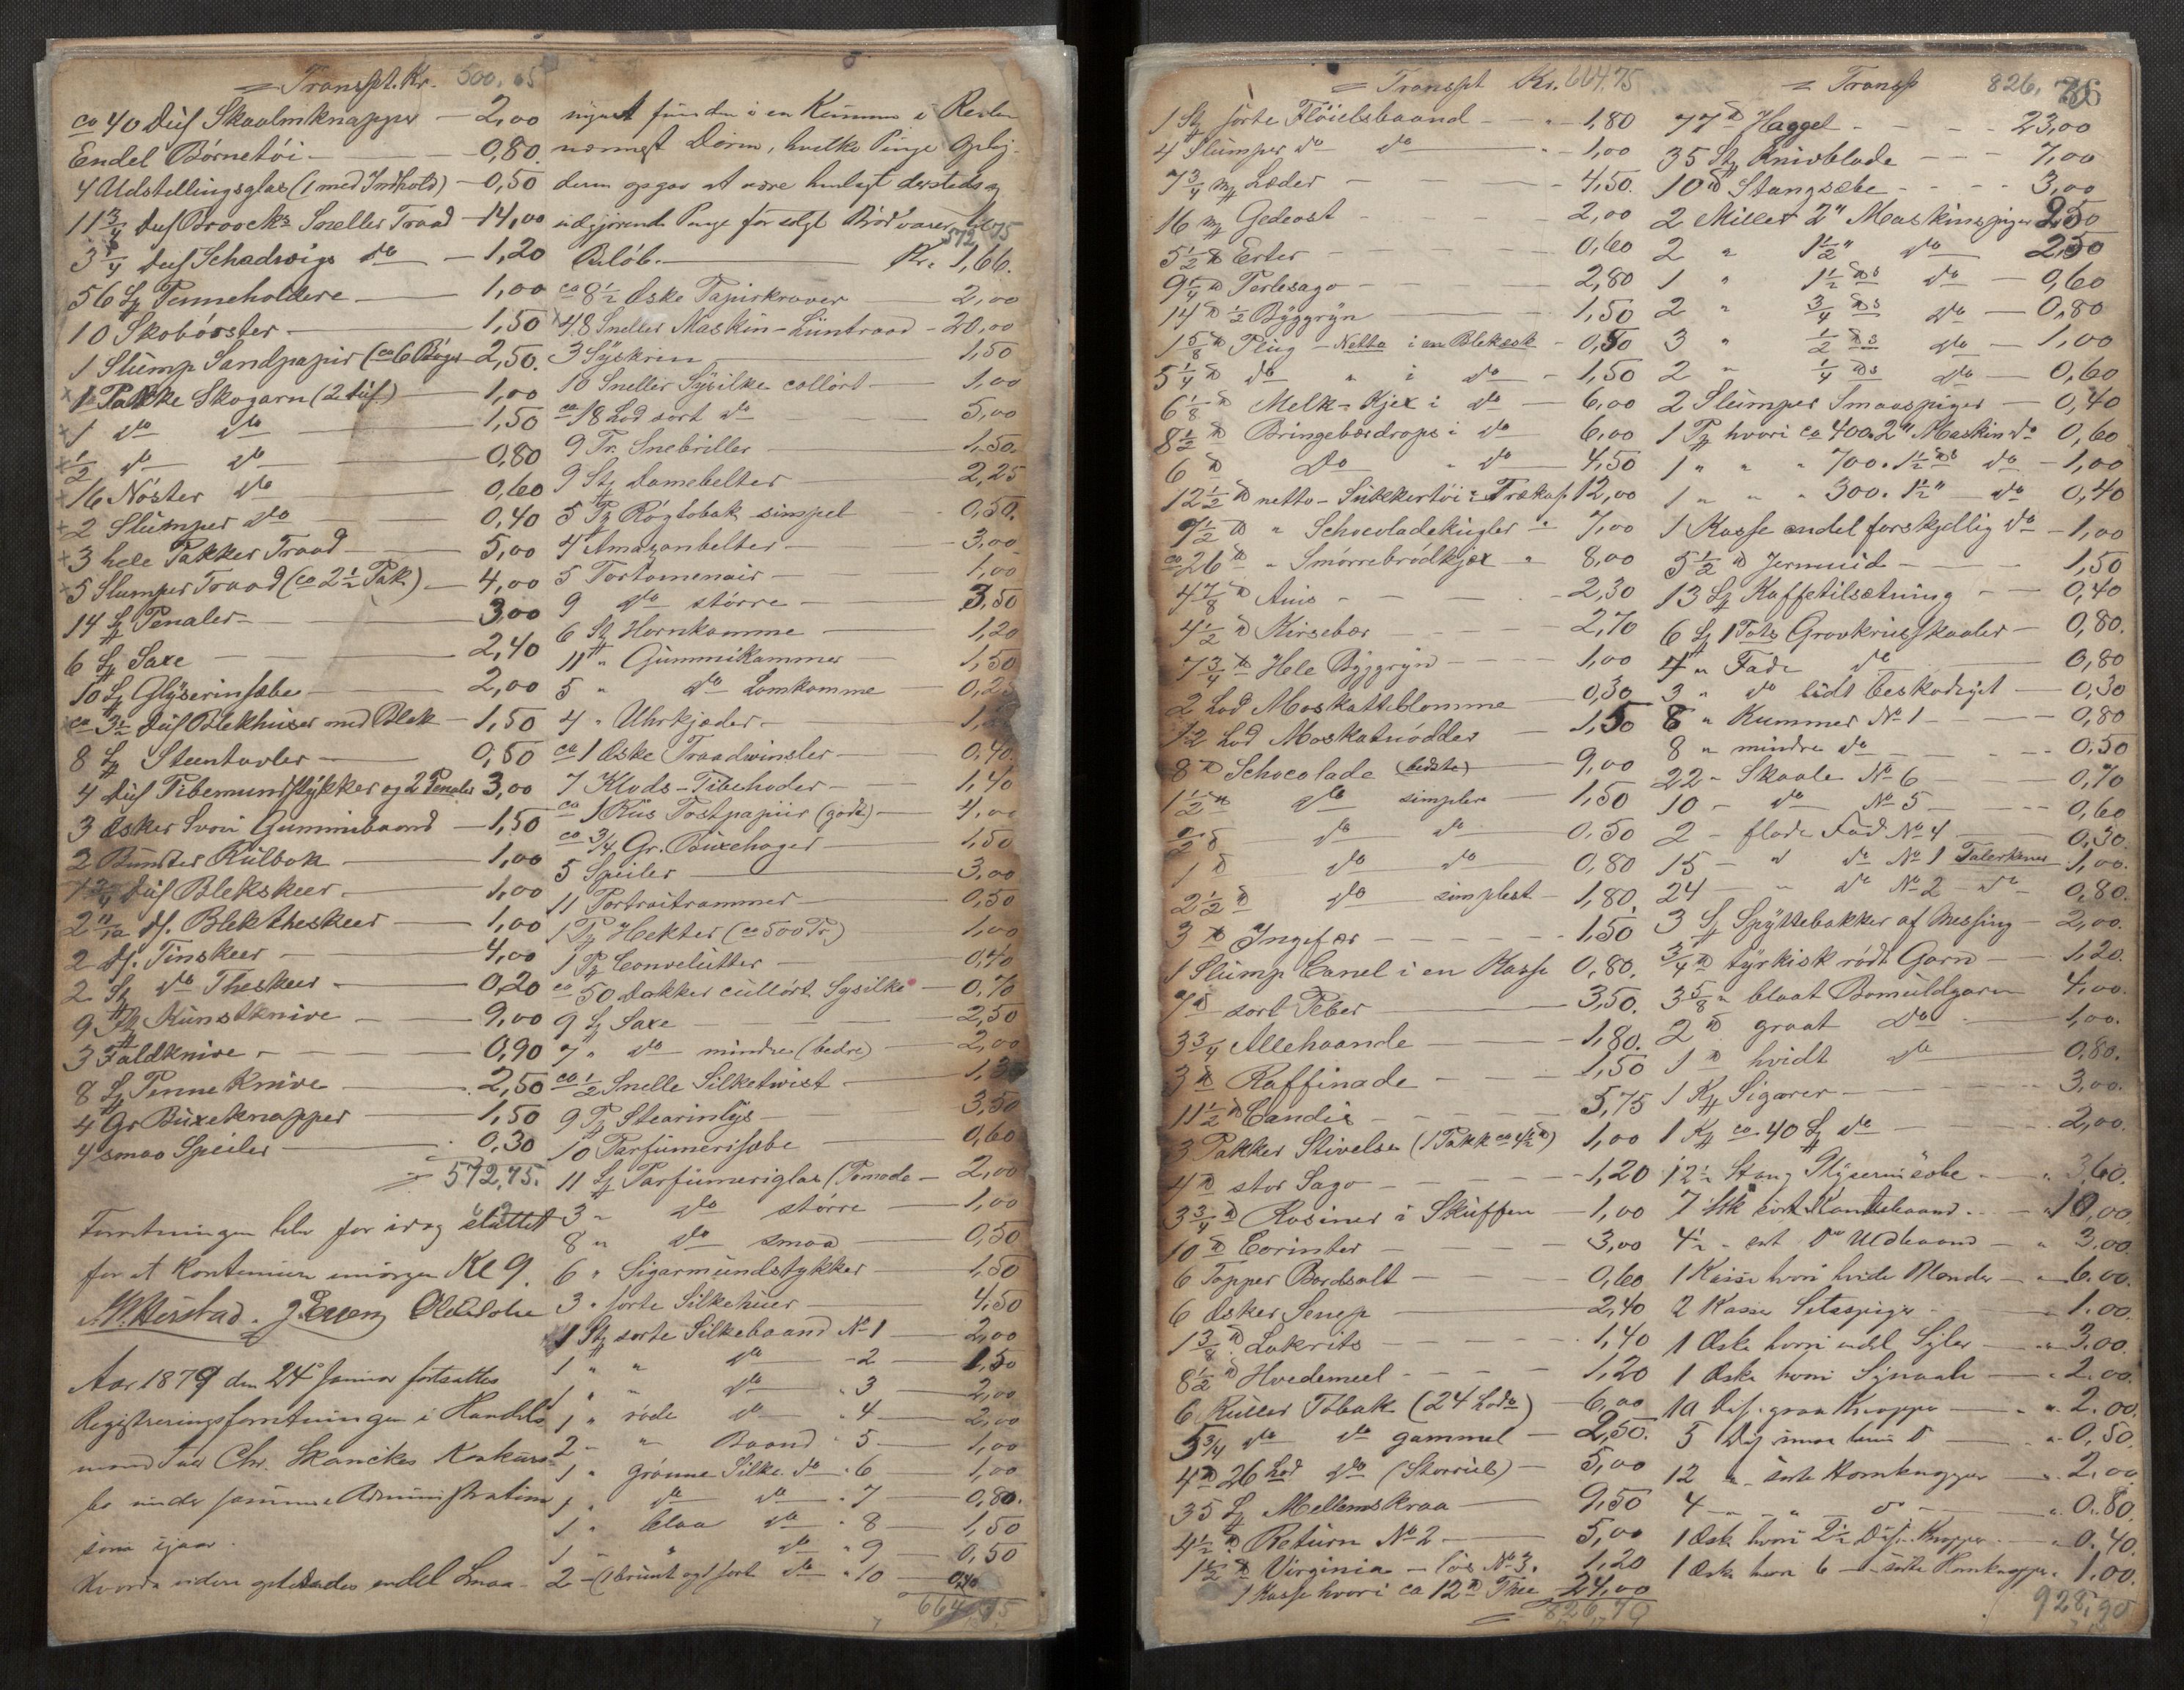 = Transpt. Kr. 500.65
ca 40 Dus Skaalmknapper — 2,00
Endel Børnetøi — 0,80
4 Udstillingsglas (1 med Indhold) — 0,50
11 3/4 Dus Broocks Sneller Traad — 14,00
3 3/4 Dus Schadwigs do — 1,20
56 St Penneholdere — 1,00
10 Skobørster — 1,50
1 Slump Sandpapir (ca 6 Bøger — 2,50
1 Pakke Skogarn (2 dus) — 1,00
1 do do — 1,50
1/2 do do — 0,80
16 Nøster do — 0,60
2 Slumper do — 0,40
3 hele Pakker Traad — 5,00
5 Slumper Traad (ca 2 1/2 Pak) — 4,00
14 St Penaler — 3,00
6 St Saxe — 2,40
10 St Glyserinsæbe — 2,00
ca 3 1/2 Dus Blekhuser med Blek — 1,50
8 St Steentavler — 0,50
4 Dus Pibemundstykker og 2 Penaler 3,00
3 Æsker hvori Gummibaand — 1,50
2 Bundter Kulbok — 1,00
1 3/4 Dus Blekskeer — 1,00
2 11/12 Ds. Bliktheskeer — 1,00
2 Ds. Tinskeer — 4,00
2 St do Theskeer — 0,20
9 St Kunstknive — 9,00
3 Foldknive — 0,90
8 St Penneknive — 2,50
4 Gr Buxeknapper — 1,50
4 smaa Speiler — 0,30
= 572,75.
Forretningen blev for idag sluttet
for at kontinuere imorgen Kl 9.
Aar 1879 den 24 Januar fortsattes
Registreringsforretningen i Handels
mand Chr. Skanckes Konkurs
bo under samme Administration
som igaar.
Hvorda videre endel Smaa
mynt funden i en Kumme i Reolen
nærmest Døren, hvilke Penge Oplig
deren opgav at være henlagt dersteds og
udgjørende Penge for solgt Brødvarer til
572,75
Beløb. — Kr. 1,66.
ca 8 1/2 Æske Papirkraver — 2,00
48 Sneller Maskin-Liintraad — 20,00
3 Syskrin — 1,50
10 Sneller Sysilke collørt — 1,00
ca 18 Lod sort do — 5,00
9 Pr. Snebriller — 1,50
9 St Damebelter — 2,25
5 Pk Røgtobak simpel — 0,50
4 Amazonbelter — 3,00
5 Portomonair — 1,00
9 do større — 3,50
6 St Hornkamme — 1,20
11 " Gummikammer — 1,50
5 " do Lomkamme — 0,25
4 " Uhrkjæder — 1,
ca 1 Æske Traadvinsler — 0,40
7 Klods-Pibehoder — 1,40
ca 1 Riis Postpapiir (godt) — 4,00
ca 3/4 Gr. Buxehager — 1,50
5 Speiler — 3,00
11 Portraitrammer — 0,50
1 Pk Hekter (ca 500 Pr) — 1,00
1 Pk Convelutter — 0,40
ca 50 Dakker cullørt Sysilke — 0,70
9 St Saxe — 2,50
7 " do mindre (bedre) — 2,00
ca 1/2 Snelle Silketwist — 1,
9 Pk Stearinlys — 3,50
10 Parfumerisæbe — 0,60
11 St Parfumeriglas (Pomade — 2,00
3 " do større — 1,00
8 " do smaa — 0,50
6 " Sigarmundstykker — 1,50
3 " sorte Silkehuer — 4,50
1 St sorte Silkebaand No 1 — 2,00
1 " " do - 2 — 1,50
1 " " do " 3 — 2,00
1 " røde do " 4 — 2,00
2 - " Baand " 5 — 1,00
1 " grønne Silke do " 6 — 1,00
1 " do do " 7 — 0,80
1 " blaa do " 8 — 1,50
1 " " do " 9 — 0,50
2 - (1 brunt og 1 sort do " 10 — 0,40
664,75
= Transpt Kr. 664.75
1 St sorte Fløielsbaand — 1,80
4 Slumper do do — 1,00
7 3/4 Mk Læder — 4,50
16 Mk Gedeost — 2,00
5 1/2 ℔ Erter — 0,60
9 1/4 ℔ Perlesago — 2,80
14 ℔ 1/2 Byggryn — 1,50
1 5/8 ℔ Plug - Netto i en Blekæsk — 0,50
5 1/4 ℔ do " i do — 1,50
6 1/8 ℔ Melk-Kjex i do — 6,00
8 1/2 ℔ Bringebærdrops i do — 6,00
6 ℔ do " do — 4,50
12 1/2 ℔ netto - Sukkertøi i Trækas. 12,00
7 1/2 ℔ " Schocoladekugler " 7,00
ca 26 ℔ " Smørrebrødkjex " 8,00
4 7/8 ℔ Anis — 2,30
4 1/2 ℔ Kirsebær — 2,70
7 3/4 ℔ Hele Byggryn — 1,00
2 Lod Moskatteblomme — 0,30
12 Lod Moskatnødder — 1,50
8 ℔ Schocolade (bedste) — 9,00
1 1/2 ℔ do simplere — 1,50
1/2 ℔ do do — 0.50
1 ℔ do do — 0,80
2 1/2 ℔ do simplest — 1,80
3 ℔ Ingefær — 1,50
1 Slump Canel i en Kasse 0,80
7 ℔ sort Peber — 3,50
3 3/4 Allehaande — 1,80
3 ℔ Raffinade — 1,50
11 1/2 ℔ Candis — 5,75
3 Pakker Stivelse (1 Pakk ca 4 1/2 ℔) 1,00
4 ℔ stor Sago — 1,20
3 3/4 ℔ Rosiner i Skuffen — 1,00
10 ℔ Corinter — 3,00
6 Topper Bordsalt — 0,60
6 Æsker Senep — 2,40
1 3/8 ℔ Lakrits — 1,40
8 1/2 ℔ Hvedemeel — 1,20
6 Ruller Tobak (24 Lods) — 6,00
5 3/4 do do gammel — 2,50
4 ℔ 26 Lod do (Storruld) — 5,00
35 St Mellemskraa — 9,50
4 1/2 ℔ Return No 2 — 5,00
1 1/2 ℔ Virginia — løs No 3. 1,20
1 Kasse hvori ca 12 ℔ Thee 24,00
= 826,70
= Transp 826,70
36
77 ℔ Haggel — 23,00
35 St Knivblade — 7,00
10 ℔ Stangsæbe — 3,00
2 Miller 2" Maskinspiger 2,50
2 " 1 1/2" do 2,50
1 " 1 1/2 ℔s do — 0,60
2 " 3/4 ℔s do — 0,80
3 " 1/2 ℔s do — 1,00
2 " 1/4 ℔s do — 0,60
2 Slumper Smaaspiger — 0,40
1 Pk hvori ca 400. 2" Maskin do 0,60
1 " " " 700. 1 1/2 ℔s do — 1,00
1 " " " 300. 1 1/2" do 0,40
1 Kasse endel forskjellig do — 1,00
5 1/2 ℔ Jernmuid — 1,50
13 St Kaffetilsætning — 0,40
6 St 1 Pots Gravkrusskaaler — 0,80
4 " Fade do — 0,80
3 " do lidt beskadiget — 0,30
8 " Kummer No 1 — 0,80
8 " mindre do — 0,50
22 - Skaale No 6 — 0,70
10 - do No 5 — 0,60
2 - flade Fad No 4 — 0,30
15 - " do No 1 Talerkner 1,00
24 — " do No 2 - do 0,80
3 St Spyttebakker af Messing — 2,00
3/4 ℔ tyrkisk rødt Garn — 1,20
3 5/8 " blaat Bomuldgarn 4,00
2 ℔ graat do 1,00
1 ℔ hvidt do 0,80
1 Ks Sigarer — 3,00
1 Ks ca 40 St do — 2,00
12 1/2 Stang Glyserinsæbe — 3,60
7 Stk sort Kantebaand — 10,00
4 1/2 - sort do Uldbaand — 3,00
1 Kasse hvori hvide Mander — 6.00
2 Kasser Setespiger — 1.00
1 Æske hvori endel Syler — 3.00
1 Æske hvori Synaale — 2.00
10 Dus. graa Knapper — 2.00
5 Dus smaa do — 0,50
12 " sorte Hornknapper — 2.00
4 — " do — 0.80
1 Æsk hvori 2 1/2 Dus. Knapper — 0.40
1 Æsk hvori 6 — sorte Hornknapper 1.00
928,90